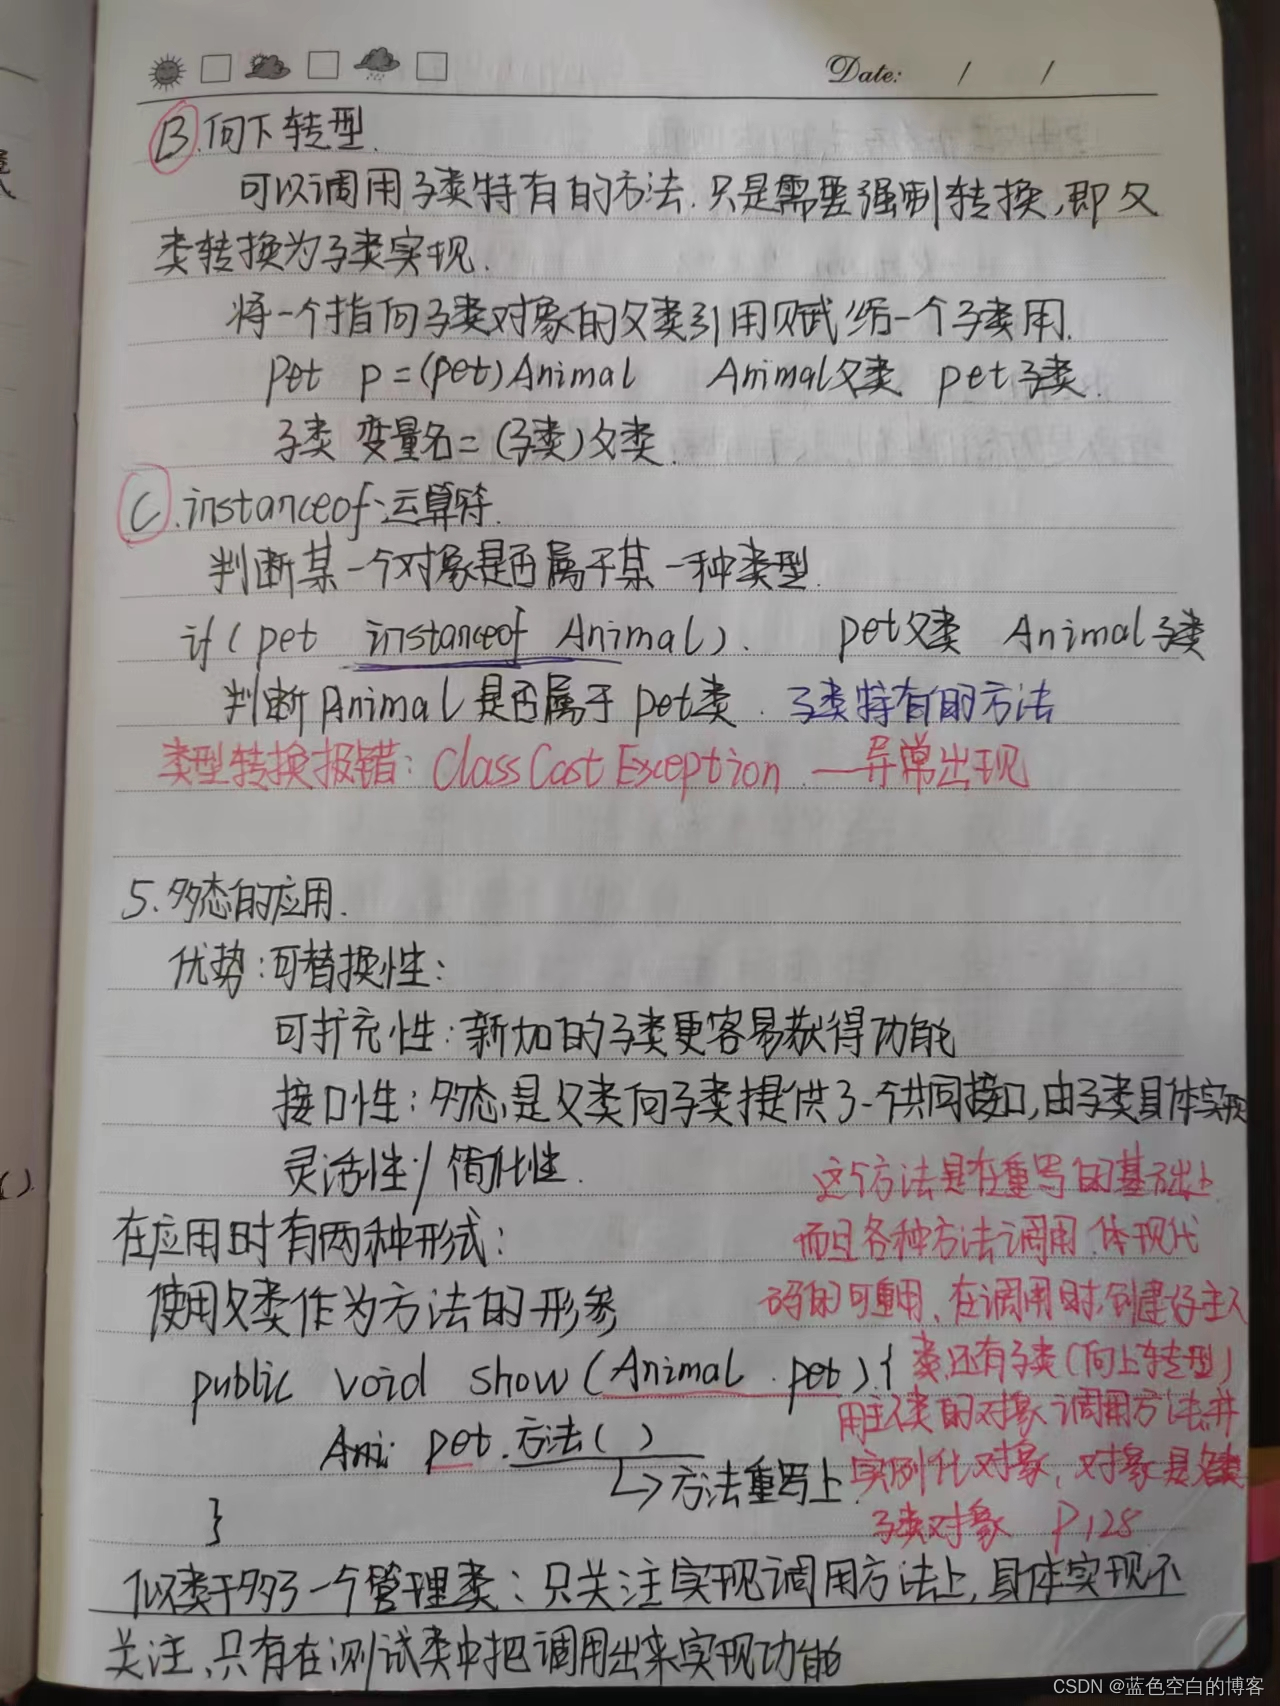 Date: / /
B.向下转型.
可以调用子类特有的方法.只是需要强制转换,即父
类转换为子类实现.
将一个指向子类对象的父类引用赋给一个子类用.
Pet p=(pet)Animal Animal父类 pet子类.
子类 变量名=(子类)父类.
C.instanceof运算符.
判断某一个对象是否属于某一种类型.
if(pet instanceof Animal). pet父类 Animal子类
判断Animal是否属于pet类. 子类特有的方法
类型转换报错: ClassCastException.—异常出现
5.多态的应用.
优势:可替换性:
可扩充性:新加的子类更容易获得功能
接口性:多态是父类向子类提供了一个共同接口,由子类具体实现
灵活性/简化性.
这个方法是在重写的基础上
在应用时有两种形式:
而且各种方法调用.体现代
码的可重用、在调用时,创建好主人
使用父类作为方法的形参
类还有子类(向上转型)
public void show(Animal pet).{
用主人类的对象调用方法并
Ani: pet.方法()
实例化对象,对象是
↳方法重写上.
子类对象 P128
}
似类于多了一个管理类:只关注实现调用方法上,具体实现不
关注、只有在测试类中把调用出来实现功能
().
CSDN @蓝色空白的博客